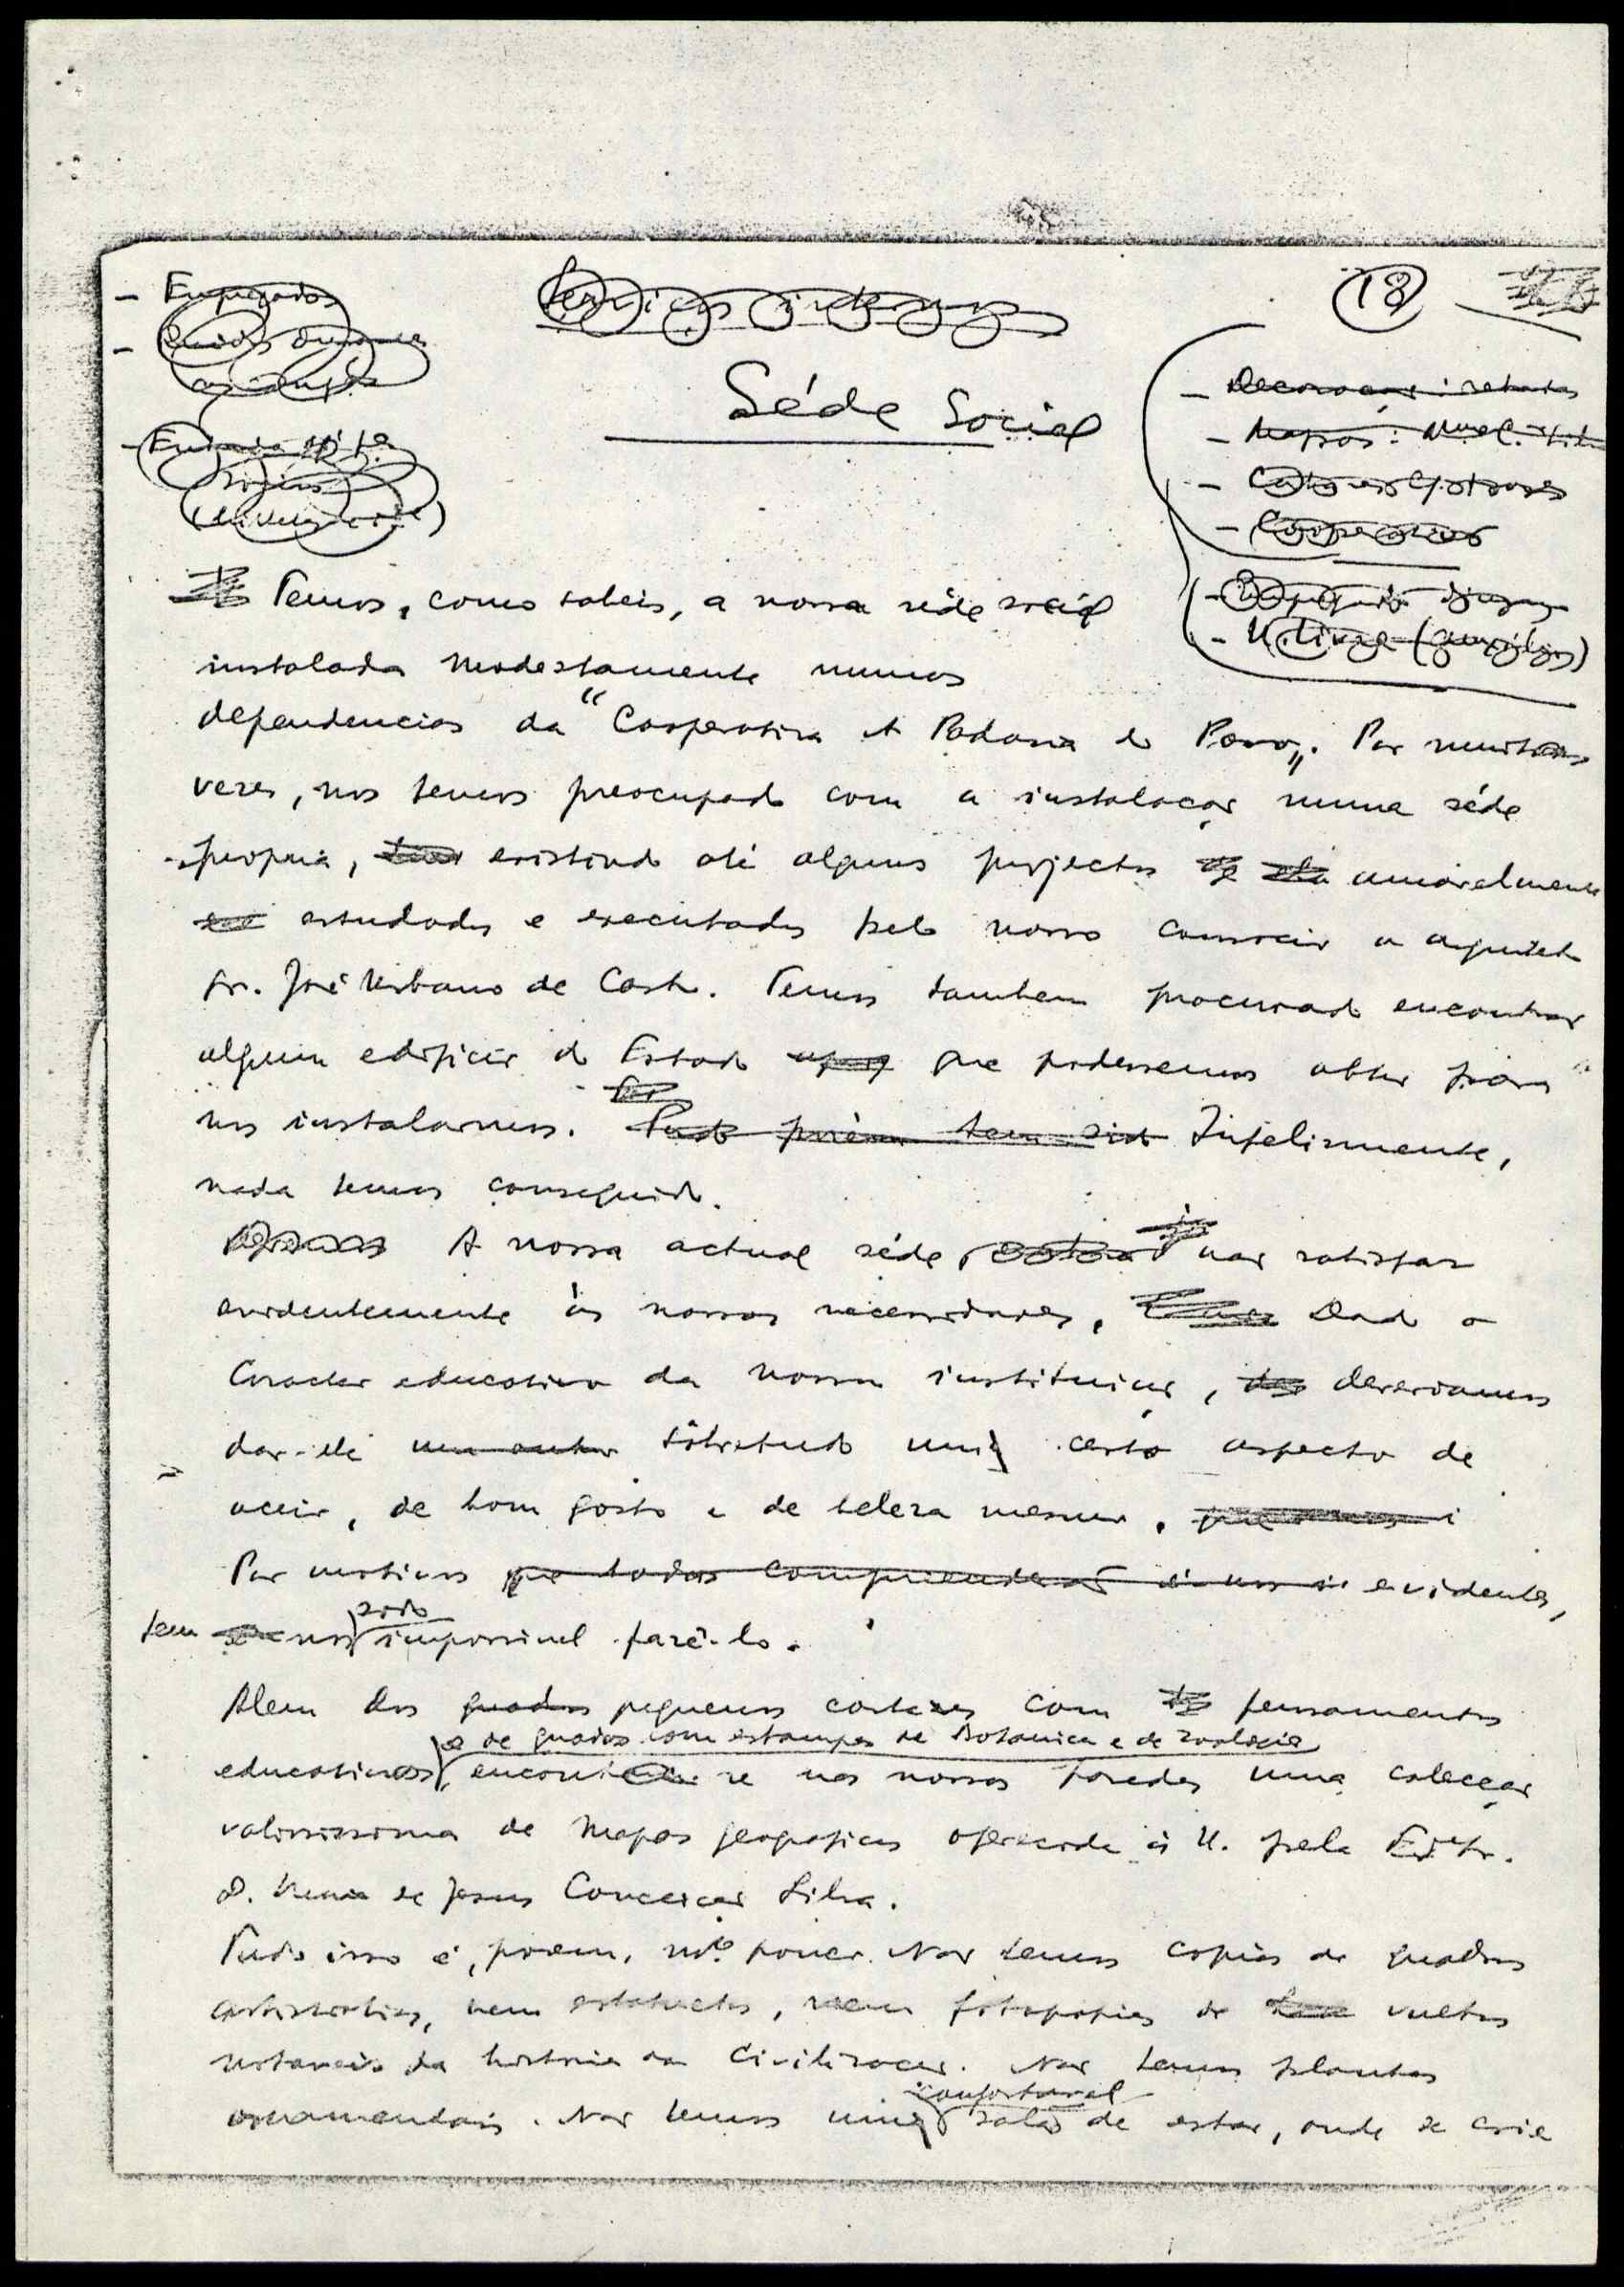 18
Séde Social
Temos, como sabeis, a nossa séde social
instalada modestamente numas
dependencias da "Cooperativa A Padaria do Povo". Por muitas
vezes, nos temos preocupado com a instalação numa séde
propria, existindo até alguns projectos amavelmente
estudados e executados pelo nosso consocio o arquitecto
sr. José Urbano de Castro. Temos tambem procurado encontrar
algum edificio do Estado que podessemos obter para
nos instalarmos. Infelismente,
nada temos conseguido.
A nossa actual séde, não satisfaz
evidentemente ás nossas necessidades. Dado o
caracter educativo da nossa instituição, deveriamos
dar-lhe sôbretudo um certo aspecto de
aceio, de bom gosto e de beleza mesmo.
Por motivos evidentes,
tem nos sido impossivel fazê-lo.
Alem dos pequenos cartazes com pensamentos
e de quadros com estampas de Botanica e de zoologia
educativos, encontra-se nas nossas paredes uma colecção
valiosissima de mapas geograficos oferecida á U. pela Exma Sr.
D. de Jesus Conceição Silva.
Tudo isso é, porem, mto pouco. Não temos copias de quadros
artisticos, nem estatuetas, nem fotografias de vultos
notaveis da historia da Civilização. Não temos plantas
confortavel
ornamentais. Não temos uma sala de estar, onde se crie